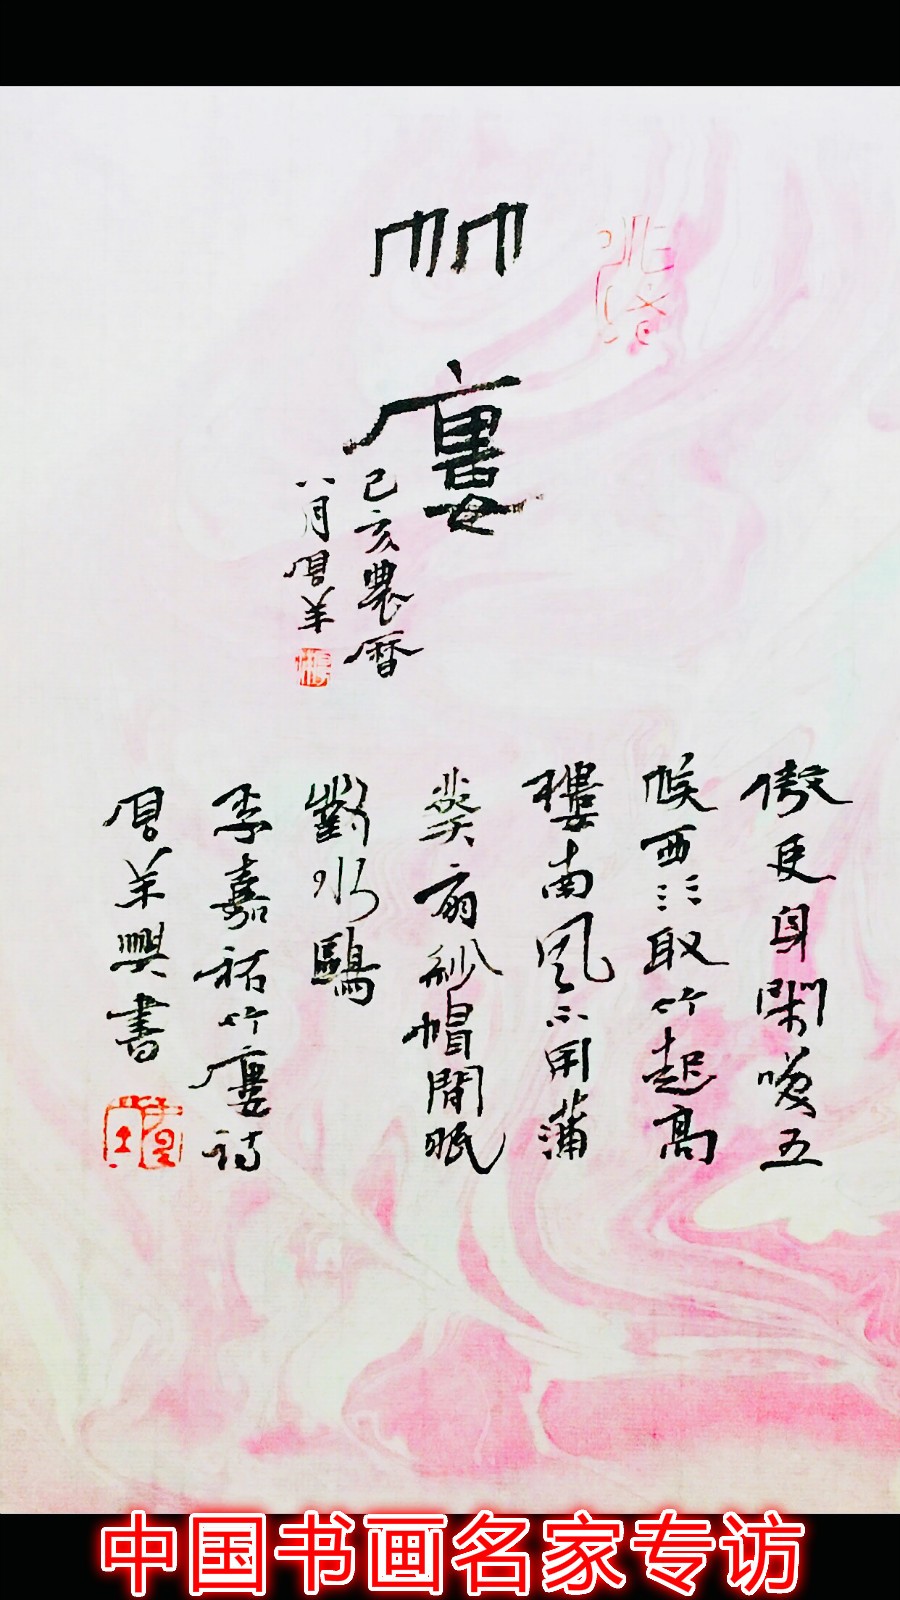 竹廔
己亥農曆
八月羊
傲吏身閑咲五
候西江取竹起高
樓南風不用蒲
葵扇紗帽閒眠
對水鷗
李嘉祐竹廔詩
羊興書
中国书画名家专访